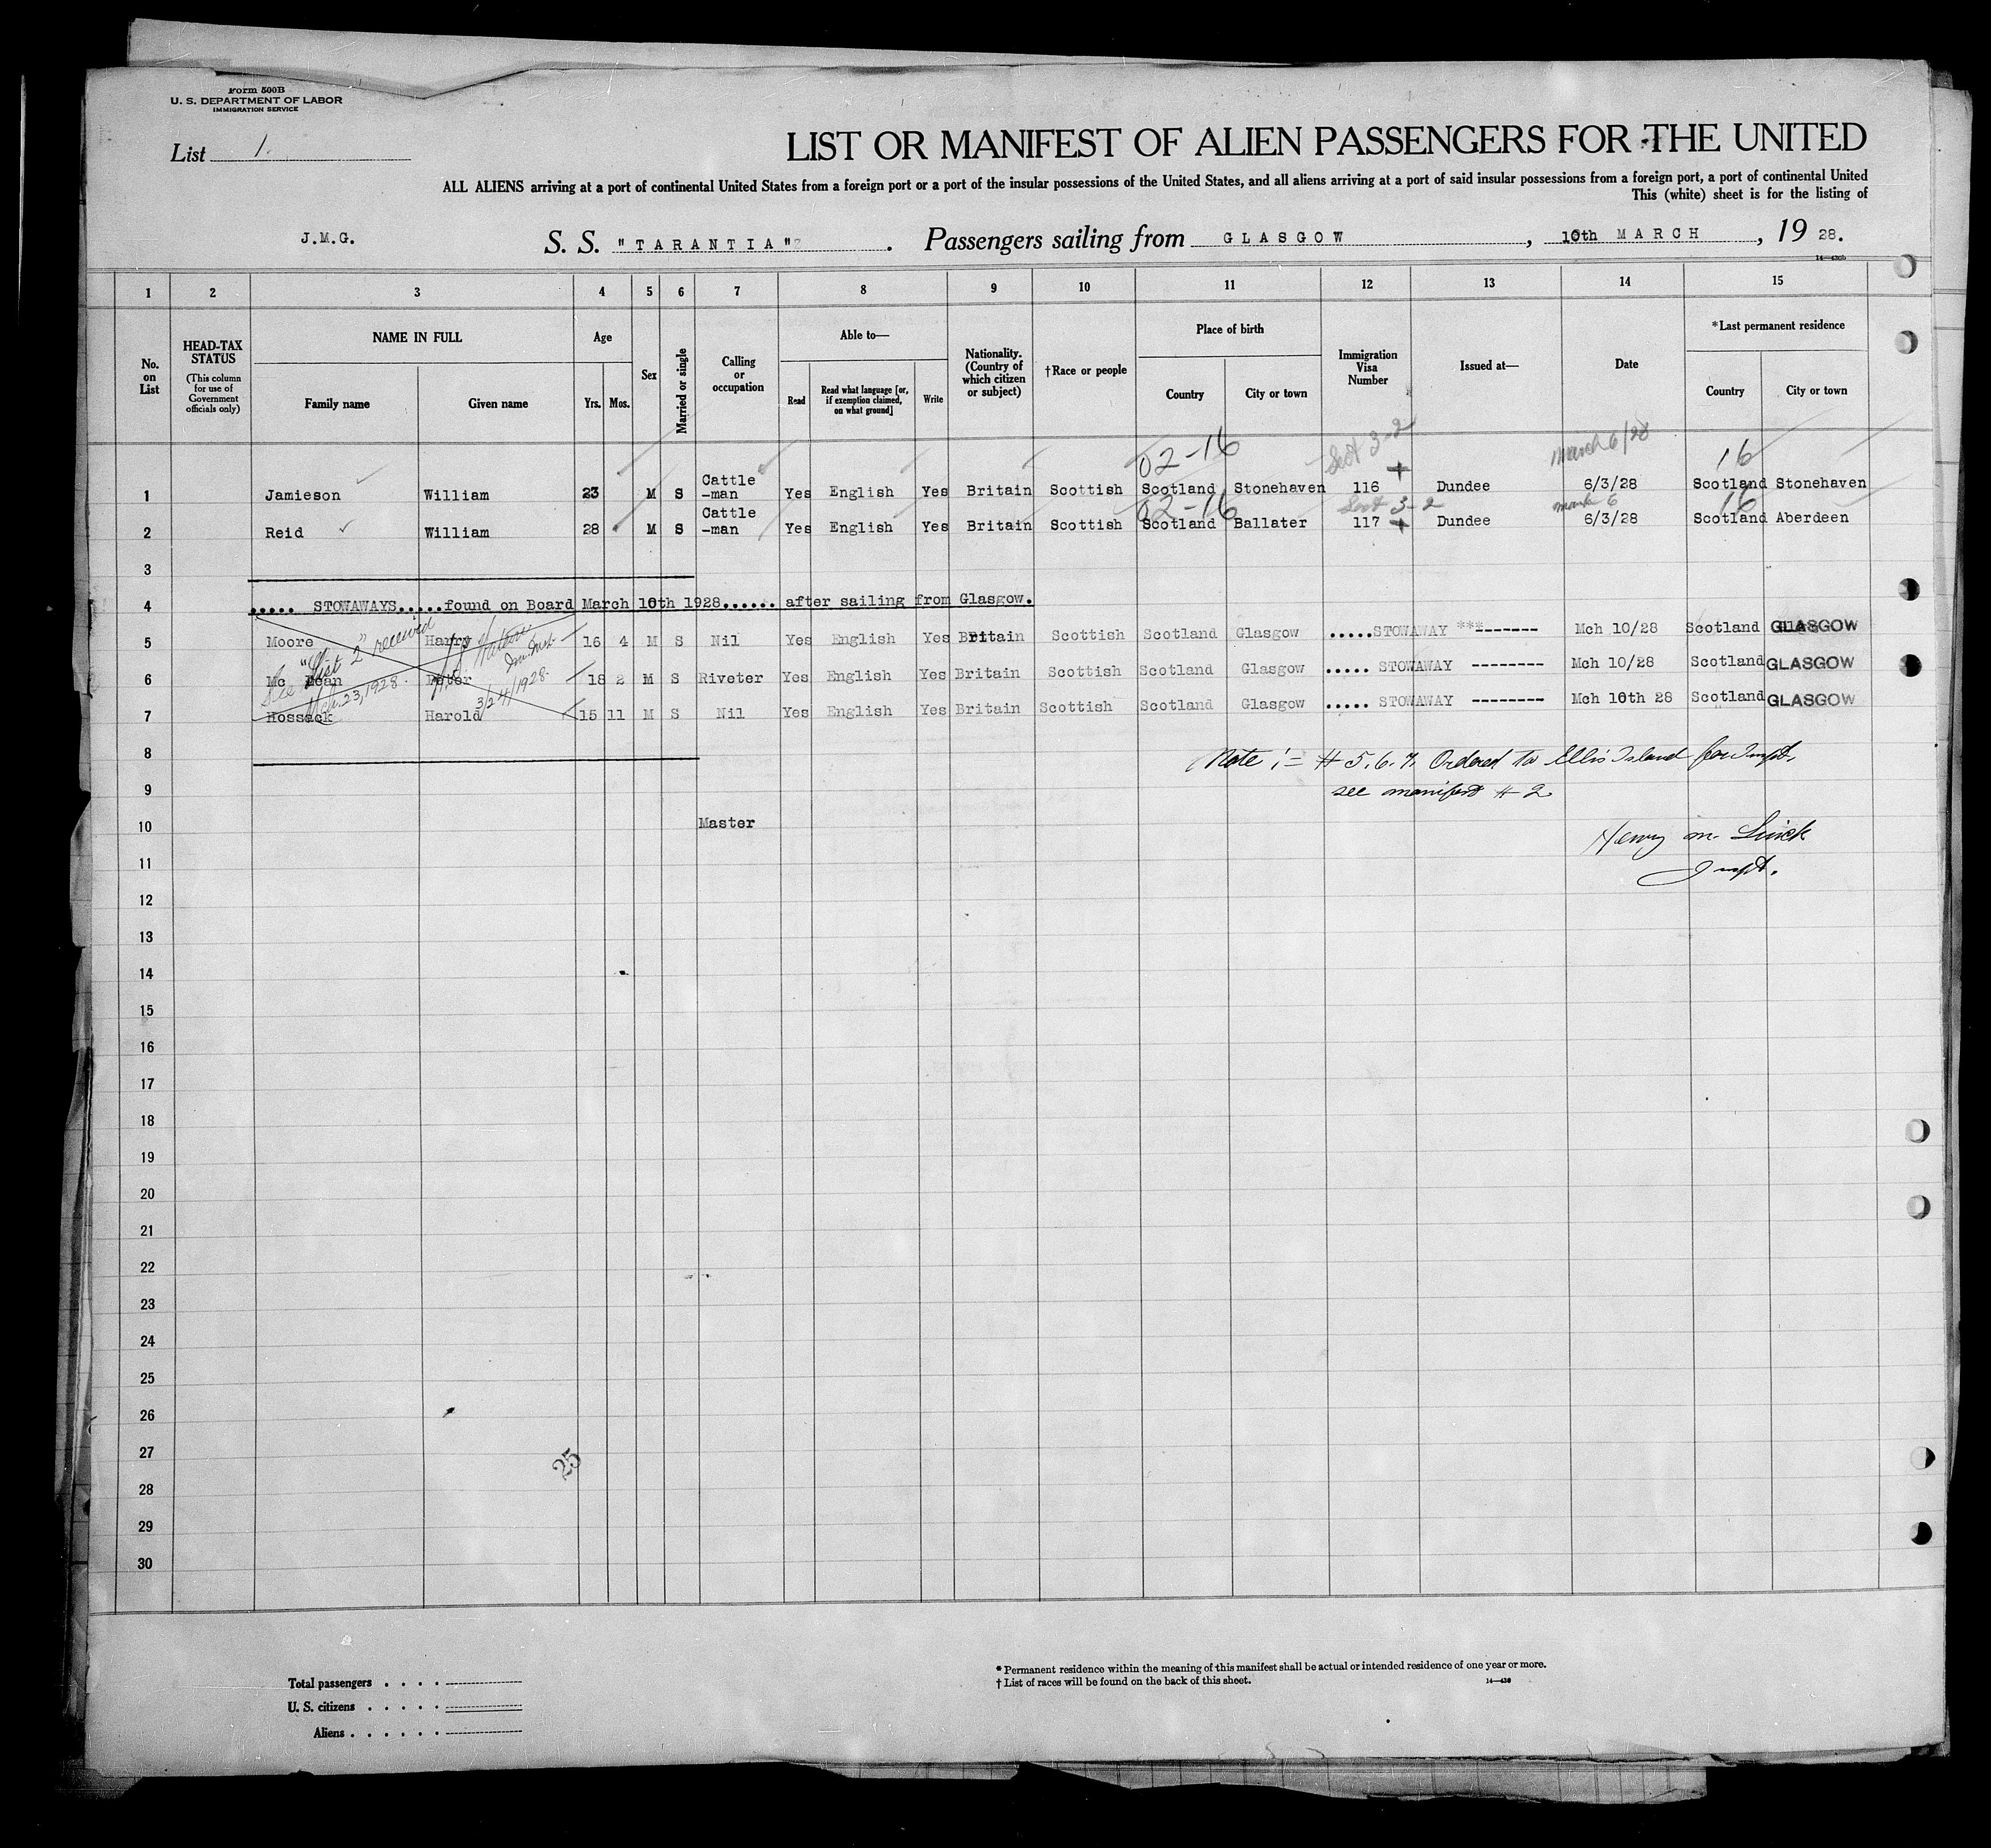 Form 500B
U. S. DEPARTMENT OF LABOR
IMMIGRATION SERVICE
List 1.
LIST OR MANIFEST OF ALIEN PASSENGERS FOR THE UNITED
ALL ALIENS arriving at a port of continental United States from a foreign port or a port of the insular possessions of the United States, and all aliens arriving at a port of said insular possessions from a foreign port, a port of continental United
This (white) sheet is for the listing of
J.M.G. S. S. "TARANTIA" . Passengers sailing from GLASGOW , 10th MARCH , 19 28.
14—430b
1 2 3 4 5 6 7 8 9 10 11 12 13 14 15
No. on List
HEAD-TAX STATUS
(This column for use of Government officials only)
NAME IN FULL
Family name Given name
Age
Yrs. Mos.
Sex
Married or single
Calling or occupation
Able to—
Read
Read what language [or, if exemption claimed, on what ground]
Write
Nationality. (Country of which citizen or subject)
†Race or people
Place of birth
Country City or town
Immigration Visa Number
Issued at—
Date
*Last permanent residence
Country City or town
02-16 Sect 3-2 March 6/28 16
1 Jamieson William 23 M S Cattle -man Yes English Yes Britain Scottish Scotland Stonehaven 116 Dundee 6/3/28 Scotland Stonehaven
02-16 Sect 3-2 March 6 16
2 Reid William 28 M S Cattle -man Yes English Yes Britain Scottish Scotland Ballater 117 Dundee 6/3/28 Scotland Aberdeen
3
4 ..... STOWAWAYS.....found on Board March 10th 1928...... after sailing from Glasgow.
5 Moore Harry 16 4 M S Nil Yes English Yes Britain Scottish Scotland Glasgow .....STOWAWAY ***------- Mch 10/28 Scotland GLASGOW
6 Mc Bean Peter 18 2 M S Riveter Yes English Yes Britain Scottish Scotland Glasgow ..... STOWAWAY -------- Mch 10/28 Scotland GLASGOW
7 Hossack Harold 15 11 M S Nil Yes English Yes Britain Scottish Scotland Glasgow ..... STOWAWAY -------- Mch 10th 28 Scotland GLASGOW
See "List 2" received
Mch. 23, 1928.
Im. Insp.
3/24/1928.
8 Note:- # 5. 6. 7. Ordered to Ellis Island for Inspt,
9 see manifest # 2
10 Master
Henry M. Linck
11 Inspt.
12
13
14
15
16
17
18
19
20
21
22
23
24
25
26
27
25
28
29
30
Total passengers . . . .
U. S. citizens . . . . .
Aliens . . . . . .
* Permanent residence within the meaning of this manifest shall be actual or intended residence of one year or more.
† List of races will be found on the back of this sheet.
14—430